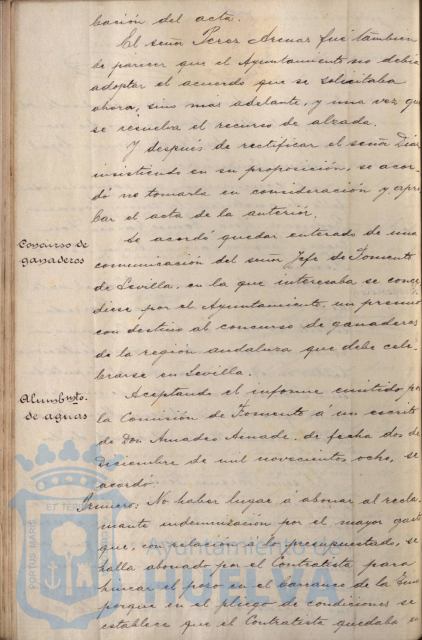 bación del acta.
El señor Perez Arenas fué tambien
de parecer que el Ayuntamiento no debia
adoptar el acuerdo que se solicitaba
ahora, sino mas adelante, y una vez que
se resuelva el recurso de alzada.
Y después de rectificar el señor Diaz
insistiendo en su proposición, se acor-
dó no tomarla en consideración y apro-
bar el acta de la anterior.
Concurso de
ganaderos
Se acordó quedar enterado de una
comunicación del señor Jefe de Fomento
de Sevilla, en la que interesaba se conce-
diese por el Ayuntamiento, un premio
con destino al concurso de ganaderos
de la región andaluza que debe cele-
brarse en Sevilla.
Alumbmto.
de aguas
Aceptando el informe emitido por
la Comisión de Fomento á un escrito
de Don Amadeo Amade, de fecha dos de
Diciembre de mil novecientos ocho, se
acordó:
Primero: No haber lugar á abonar al recla-
mante indemnización por el mayor gasto
que, con relación á lo presupuestado, se
halla abonado por el Contratista para
hincar el pozo en el barranco de la
porque en el pliego de condiciones se
establece que el Contratista quedaba
Ayuntamiento de
HUELVA
PORTUS MARIS ET TERRAE